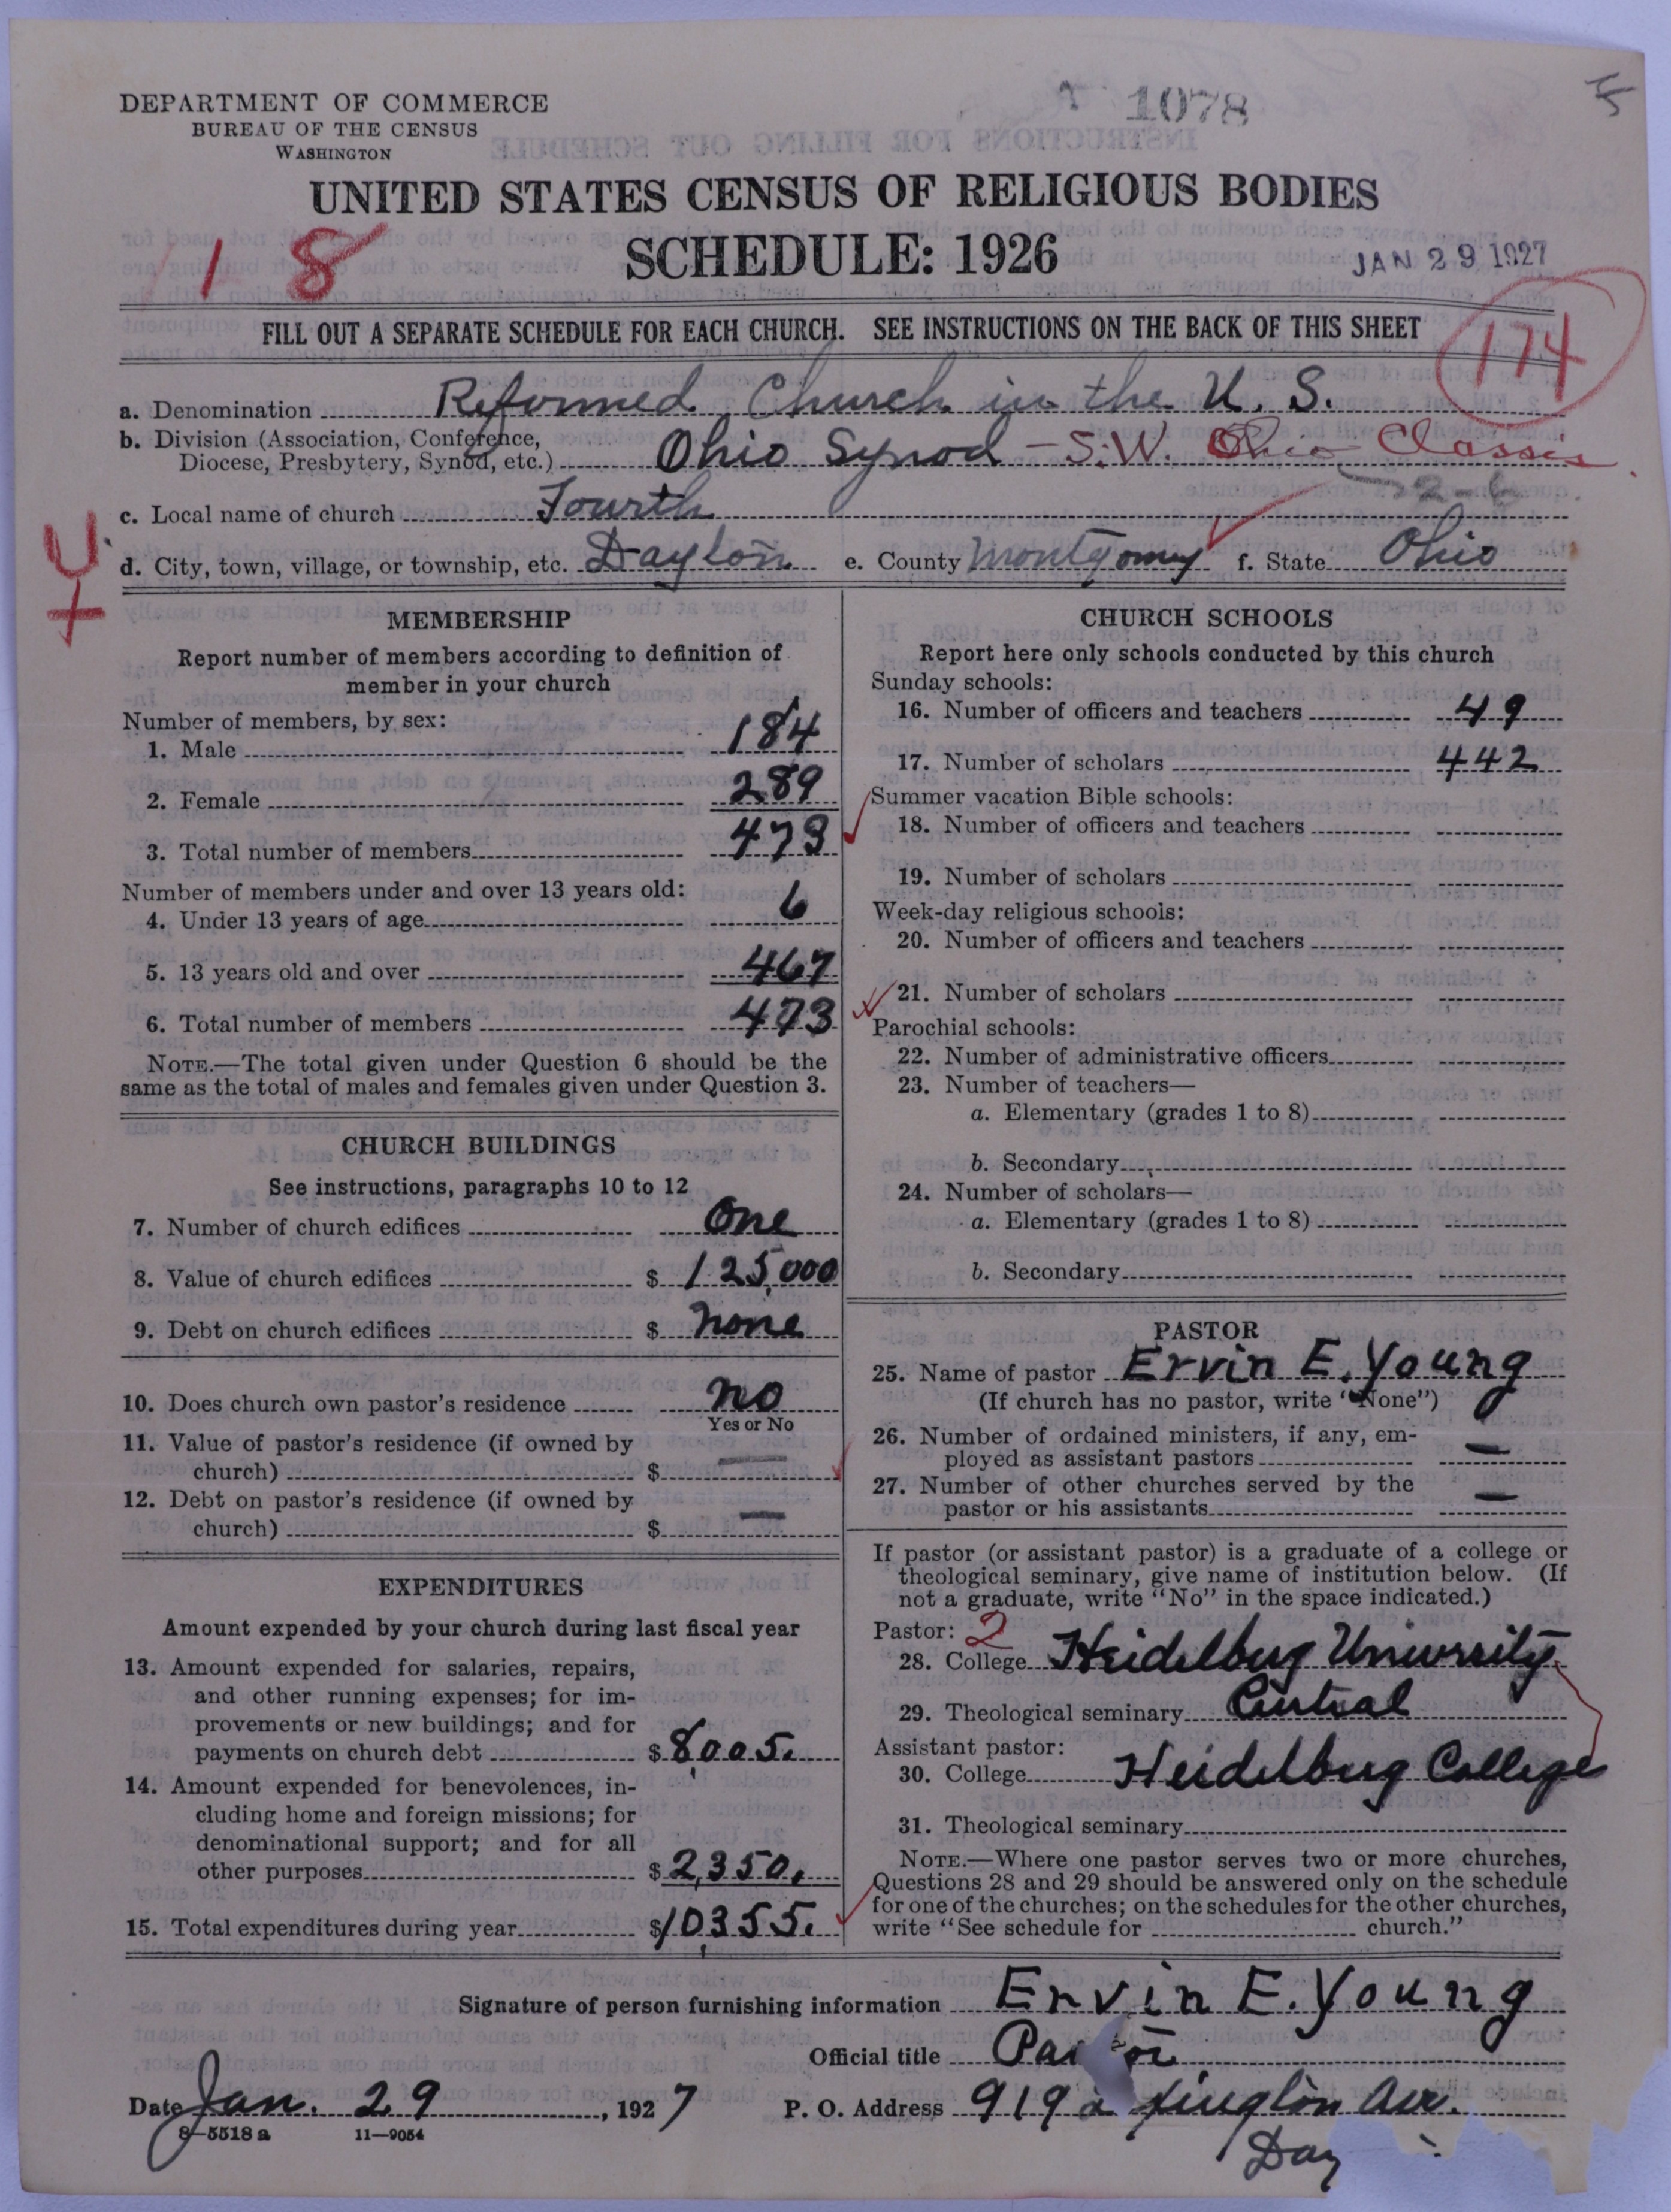 1078
DEPARTMENT OF COMMERCE
BUREAU OF THE CENSUS
WASHINGTON
UNITED STATES CENSUS OF RELIGIOUS BODIES
SCHEDULE: 1926
JAN 29 1927
1 8
FILL OUT A SEPARATE SCHEDULE FOR EACH CHURCH. SEE INSTRUCTIONS ON THE BACK OF THIS SHEET
174
a. Denomination Reformed Church in the U. S.
b. Division (Association, Conference,
Diocese, Presbytery, Synod, etc.) Ohio Synod - S.W. Ohio Classis
c. Local name of church Fourth
d. City, town, village, or township, etc. Dayton e. County Montgomery f. State Ohio
MEMBERSHIP
Report number of members according to definition of
member in your church
Number of members, by sex:
1. Male 184
2. Female 289
3. Total number of members 473
Number of members under and over 13 years old:
4. Under 13 years of age 6
5. 13 years old and over 467
6. Total number of members 473
NOTE.—The total given under Question 6 should be the
same as the total of males and females given under Question 3.
CHURCH BUILDINGS
See instructions, paragraphs 10 to 12
7. Number of church edifices One
8. Value of church edifices $ 125,000
9. Debt on church edifices $ none
10. Does church own pastor's residence no
Yes or No
11. Value of pastor's residence (if owned by
church) $ —
12. Debt on pastor's residence (if owned by
church) $ —
EXPENDITURES
Amount expended by your church during last fiscal year
13. Amount expended for salaries, repairs,
and other running expenses; for im-
provements or new buildings; and for
payments on church debt $ 8,005.
14. Amount expended for benevolences, in-
cluding home and foreign missions; for
denominational support; and for all
other purposes $ 2,350.
15. Total expenditures during year $ 10,355.
CHURCH SCHOOLS
Report here only schools conducted by this church
Sunday schools:
16. Number of officers and teachers 49
17. Number of scholars 442
Summer vacation Bible schools:
18. Number of officers and teachers
19. Number of scholars
Week-day religious schools:
20. Number of officers and teachers
21. Number of scholars
Parochial schools:
22. Number of administrative officers
23. Number of teachers—
a. Elementary (grades 1 to 8)
b. Secondary
24. Number of scholars—
a. Elementary (grades 1 to 8)
b. Secondary
PASTOR
25. Name of pastor Ervin E. Young
(If church has no pastor, write "None")
26. Number of ordained ministers, if any, em-
ployed as assistant pastors —
27. Number of other churches served by the
pastor or his assistants —
If pastor (or assistant pastor) is a graduate of a college or
theological seminary, give name of institution below. (If
not a graduate, write "No" in the space indicated.)
Pastor: 2
28. College Heidelberg University
29. Theological seminary Central
Assistant pastor:
30. College Heidelberg College
31. Theological seminary
NOTE.—Where one pastor serves two or more churches,
Questions 28 and 29 should be answered only on the schedule
for one of the churches; on the schedules for the other churches,
write "See schedule for church."
Signature of person furnishing information Ervin E. Young
Official title Pastor
Date Jan. 29, 1927 P. O. Address 919 Lexington Ave.
8—5518 a 11—9054
Day